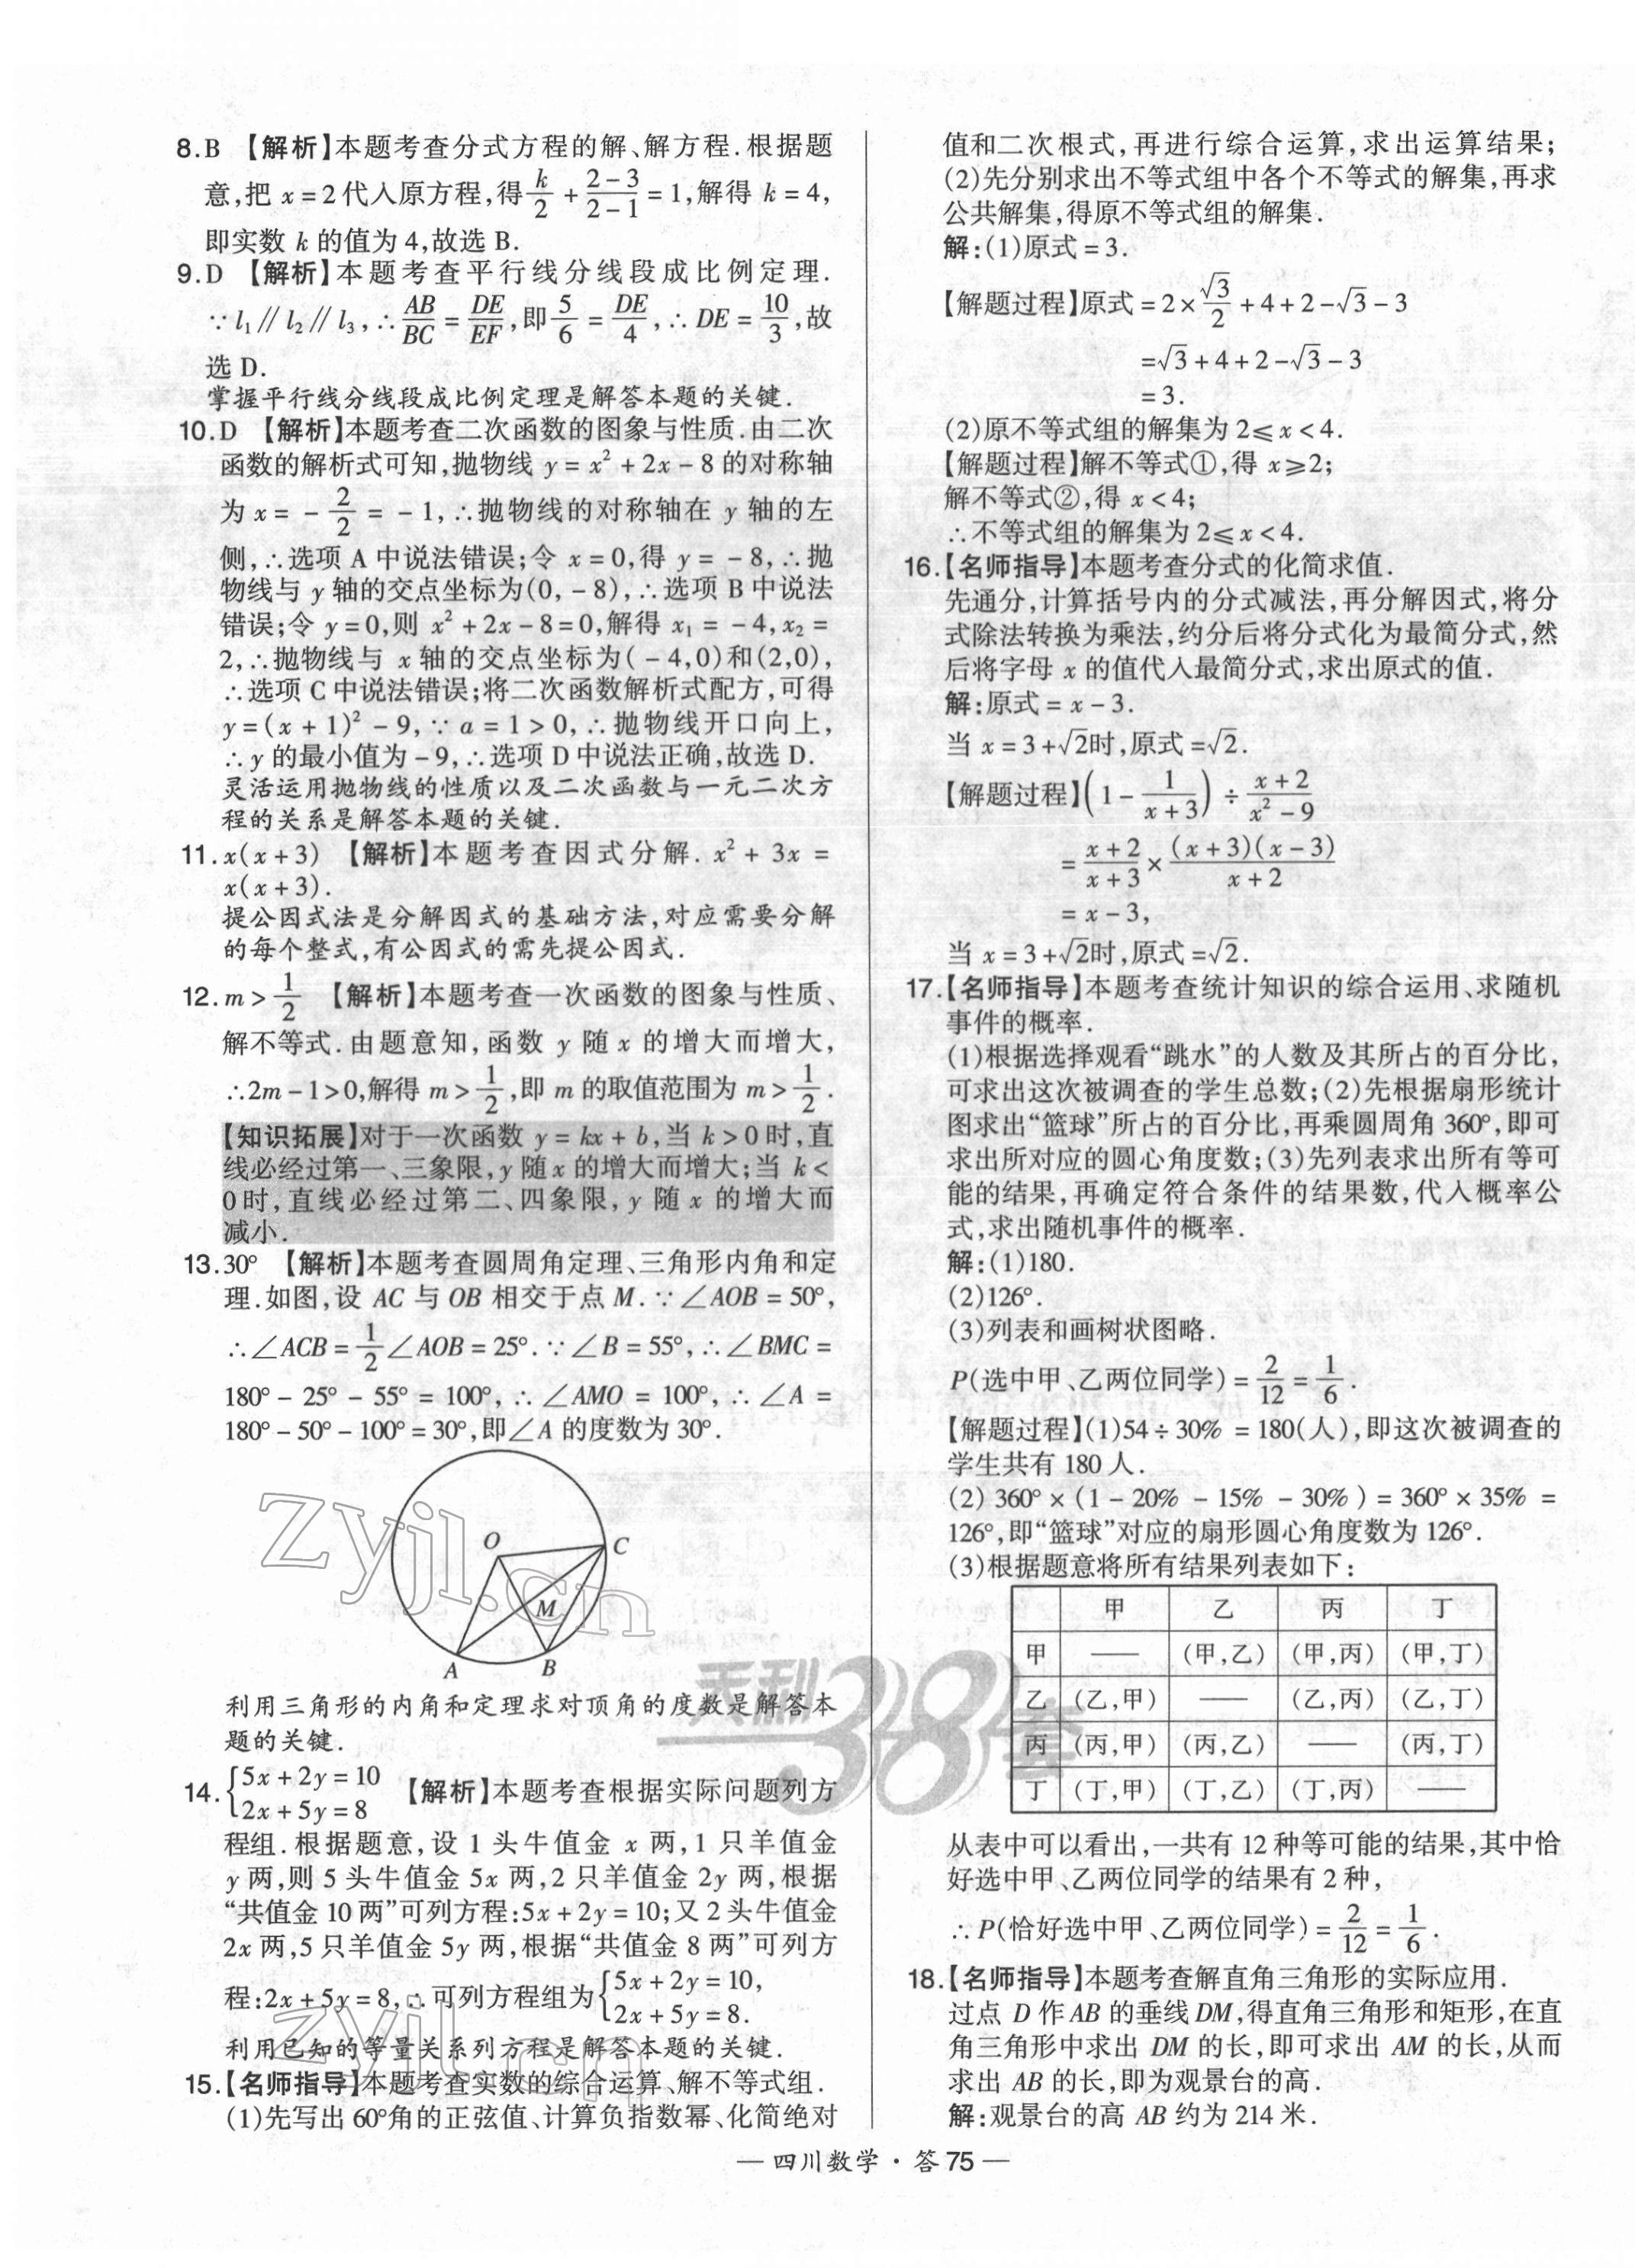 8.B 【解析】本题考查分式方程的解、解方程.根据题
意,把 x=2代入原方程,得k/2+(2-3)/(2-1)=1,解得 k=4,
即实数 k 的值为 4,故选 B.
9.D 【解析】本题考查平行线分线段成比例定理.
∵l₁∥l₂∥l₃,∴AB/BC=DE/EF,即5/6=DE/4,∴DE=10/3,故
选 D.
掌握平行线分线段成比例定理是解答本题的关键.
10.D 【解析】本题考查二次函数的图象与性质.由二次
函数的解析式可知,抛物线 y=x²+2x-8 的对称轴
为 x=-2/2=-1,∴抛物线的对称轴在 y 轴的左
侧,∴选项 A 中说法错误;令 x=0,得 y=-8,∴抛
物线与 y 轴的交点坐标为(0,-8),∴选项 B 中说法
错误;令 y=0,则 x²+2x-8=0,解得 x₁=-4,x₂=
2,∴抛物线与 x 轴的交点坐标为(-4,0)和(2,0),
∴选项 C 中说法错误;将二次函数解析式配方,可得
y=(x+1)²-9,∵a=1>0,∴抛物线开口向上,
∴y 的最小值为-9,∴选项 D 中说法正确,故选 D.
灵活运用抛物线的性质以及二次函数与一元二次方
程的关系是解答本题的关键.
11.x(x+3) 【解析】本题考查因式分解.x²+3x=
x(x+3).
提公因式法是分解因式的基础方法,对应需要分解
的每个整式,有公因式的需先提公因式.
12.m>1/2 【解析】本题考查一次函数的图象与性质、
解不等式.由题意知,函数 y 随 x 的增大而增大,
∴2m-1>0,解得 m>1/2,即 m 的取值范围为 m>1/2.
【知识拓展】对于一次函数 y=kx+b,当 k>0时,直
线必经过第一、三象限,y 随x 的增大而增大;当 k<
0时,直线必经过第二、四象限,y 随 x 的增大而
减小.
13.30° 【解析】本题考查圆周角定理、三角形内角和定
理.如图,设 AC 与 OB 相交于点 M.∵∠AOB=50°,
∴∠ACB=1/2∠AOB=25°.∵∠B=55°,∴∠BMC=
180°-25°-55°=100°,∴∠AMO=100°,∴∠A=
180°-50°-100°=30°,即∠A 的度数为 30°.
O
C
M
A
B
利用三角形的内角和定理求对顶角的度数是解答本
题的关键.
14.{5x+2y=10
2x+5y=8 【解析】本题考查根据实际问题列方
程组.根据题意,设 1 头牛值金 x 两,1 只羊值金
y 两,则 5 头牛值金 5x 两,2 只羊值金 2y 两,根据
“共值金 10 两”可列方程:5x+2y=10;又 2 头牛值金
2x 两,5 只羊值金 5y 两,根据“共值金 8 两”可列方
程:2x+5y=8,∴可列方程组为{5x+2y=10,
2x+5y=8.
利用已知的等量关系列方程是解答本题的关键.
15.【名师指导】本题考查实数的综合运算、解不等式组.
(1)先写出 60°角的正弦值、计算负指数幂、化简绝对
值和二次根式,再进行综合运算,求出运算结果;
(2)先分别求出不等式组中各个不等式的解集,再求
公共解集,得原不等式组的解集.
解:(1)原式=3.
【解题过程】原式=2×√3/2+4+2-√3-3
=√3+4+2-√3-3
=3.
(2)原不等式组的解集为 2≤x<4.
【解题过程】解不等式①,得 x≥2;
解不等式②,得 x<4;
∴不等式组的解集为 2≤x<4.
16.【名师指导】本题考查分式的化简求值.
先通分,计算括号内的分式减法,再分解因式,将分
式除法转换为乘法,约分后将分式化为最简分式,然
后将字母 x 的值代入最简分式,求出原式的值.
解:原式=x-3.
当 x=3+√2时,原式=√2.
【解题过程】(1-1/(x+3))÷(x+2)/(x²-9)
=(x+2)/(x+3)×(x+3)(x-3)/(x+2)
=x-3,
当 x=3+√2时,原式=√2.
17.【名师指导】本题考查统计知识的综合运用、求随机
事件的概率.
(1)根据选择观看“跳水”的人数及其所占的百分比,
可求出这次被调查的学生总数;(2)先根据扇形统计
图求出“篮球”所占的百分比,再乘圆周角 360°,即可
求出所对应的圆心角度数;(3)先列表求出所有等可
能的结果,再确定符合条件的结果数,代入概率公
式,求出随机事件的概率.
解:(1)180.
(2)126°.
(3)列表和画树状图略.
P(选中甲、乙两位同学)=2/12=1/6.
【解题过程】(1)54÷30%=180(人),即这次被调查的
学生共有 180 人.
(2) 360°×(1-20%-15%-30%)=360°×35%=
126°,即“篮球”对应的扇形圆心角度数为 126°.
(3)根据题意将所有结果列表如下:
甲 乙 丙 丁
甲 —— (甲,乙) (甲,丙) (甲,丁)
乙 (乙,甲) —— (乙,丙) (乙,丁)
丙 (丙,甲) (丙,乙) —— (丙,丁)
丁 (丁,甲) (丁,乙) (丁,丙) ——
从表中可以看出,一共有 12 种等可能的结果,其中恰
好选中甲、乙两位同学的结果有 2 种,
∴P(恰好选中甲、乙两位同学)=2/12=1/6.
18.【名师指导】本题考查解直角三角形的实际应用.
过点 D 作AB 的垂线 DM,得直角三角形和矩形,在直
角三角形中求出 DM 的长,即可求出 AM 的长,从而
求出 AB 的长,即为观景台的高.
解:观景台的高 AB 约为 214 米.
— 四川数学·答 75 —
zyjl.cn
天利38套
zyjl.cn